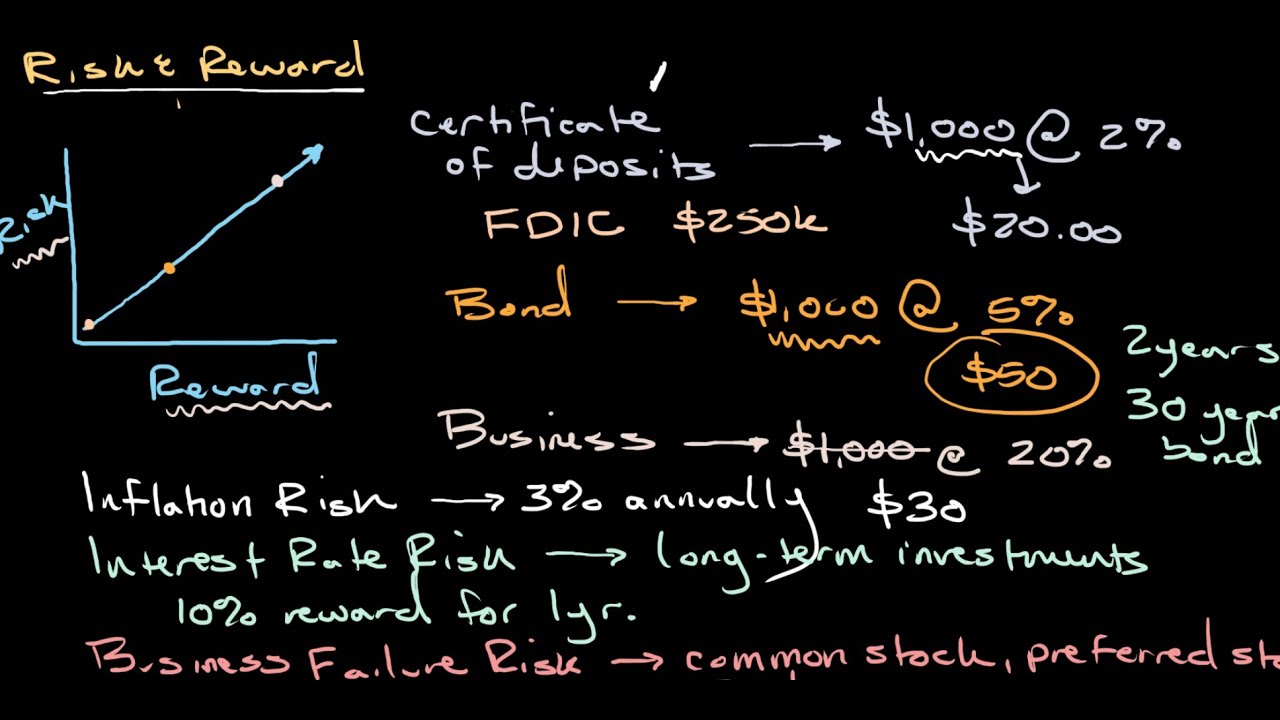 Risk & Reward
Risk
Reward
certificate
of deposits → $1,000 @ 2%
FDIC $250k
$20.00
Bond → $1,000 @ 5%
$50
2 years
30 year
bond
Business → $1,000 @ 20%
Inflation Risk → 3% annually $30
Interest Rate Risk → long-term investments
10% reward for 1yr.
Business Failure Risk → common stock, preferred sto